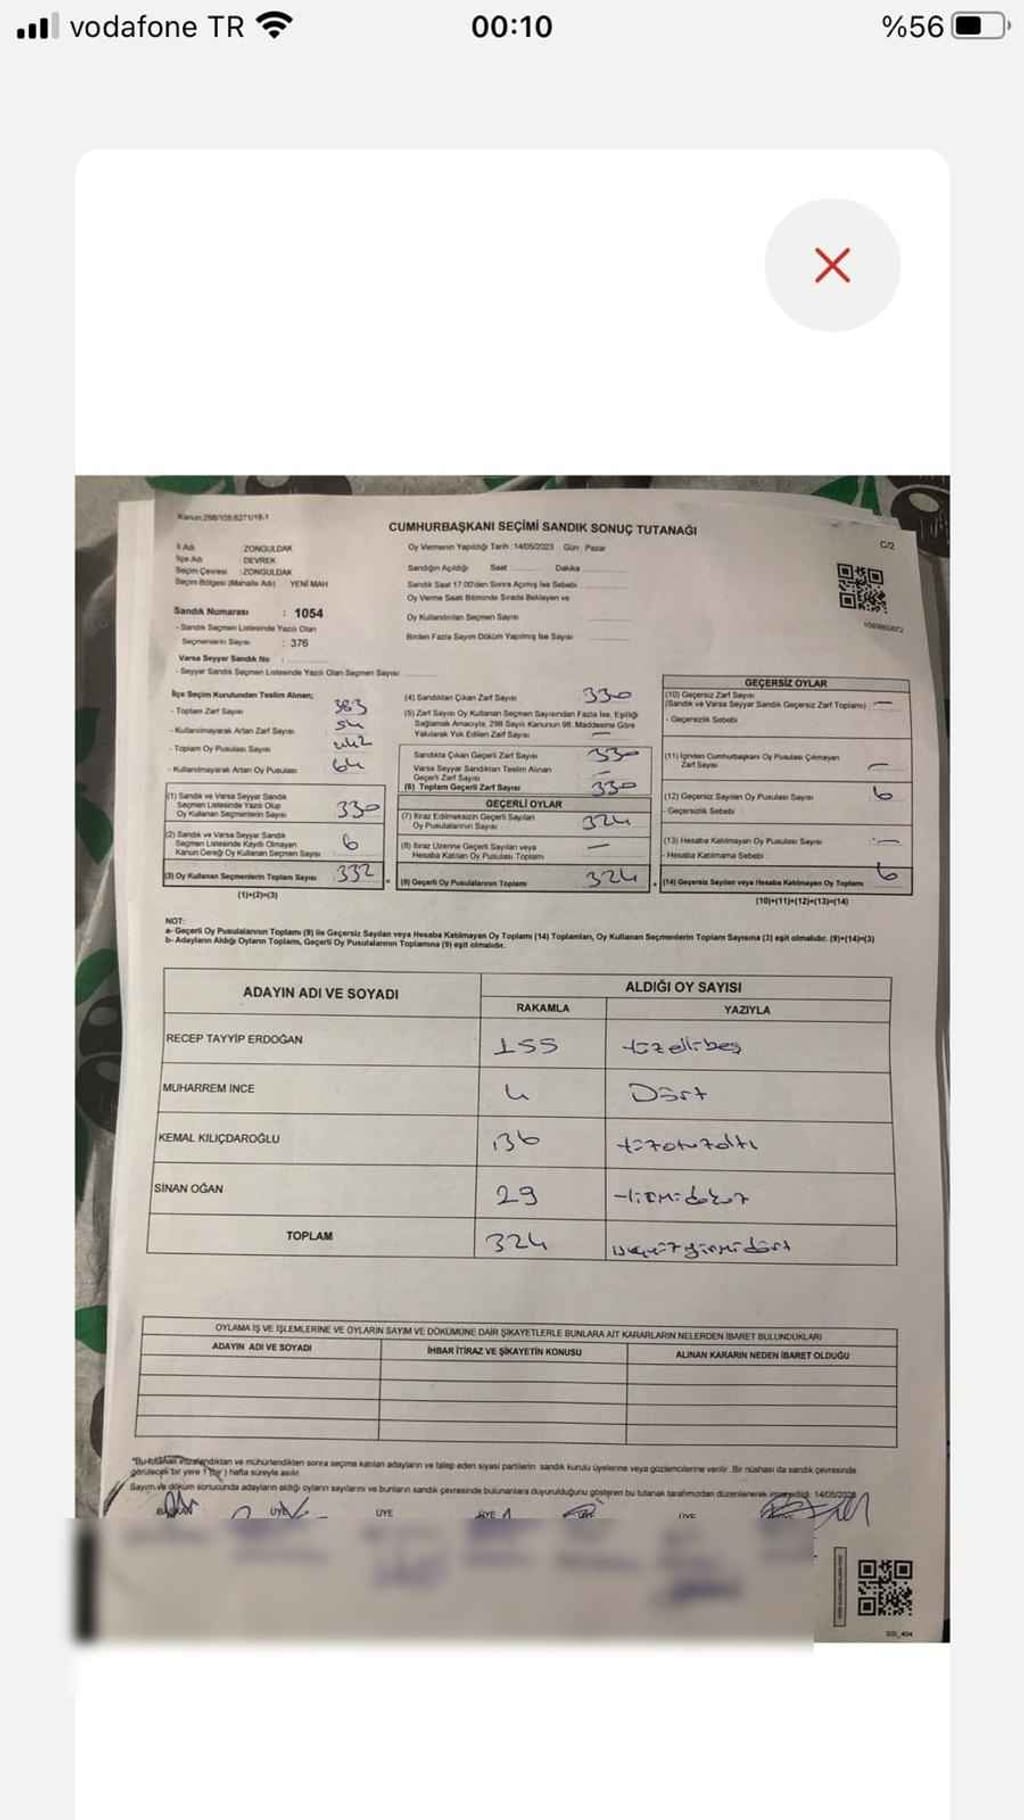 vodafone TR 00:10 %56
Kanun:298/105;6271/19-1
CUMHURBAŞKANI SEÇİMİ SANDIK SONUÇ TUTANAĞI
C/2
İl Adı ZONGULDAK
İlçe Adı DEVREK
Seçim Çevresi :ZONGULDAK
Seçim Bölgesi (Mahalle Adı) YENİ MAH
Sandık Numarası : 1054
- Sandık Seçmen Listesinde Yazılı Olan
Seçmenlerin Sayısı : 376
Varsa Seyyar Sandık No :
- Seyyar Sandık Seçmen Listesinde Yazılı Olan Seçmen Sayısı
Oy Vermenin Yapıldığı Tarih :14/05/2023 Gün Pazar
Sandığın Açıldığı Saat Dakika
Sandık Saat 17.00'den Sonra Açılmış İse Sebebi
Oy Verme Saat Bitiminde Sırada Bekleyen ve
Oy Kullandırılan Seçmen Sayısı
Birden Fazla Sayım Döküm Yapılmış İse Sayısı
İlçe Seçim Kurulundan Teslim Alınan;
- Toplam Zarf Sayısı 383
- Kullanılmayarak Artan Zarf Sayısı 54
- Toplam Oy Pusulası Sayısı 442
- Kullanılmayarak Artan Oy Pusulası 64
(1) Sandık ve Varsa Seyyar Sandık
Seçmen Listesinde Yazılı Olup
Oy Kullanan Seçmenlerin Sayısı 330
(2) Sandık ve Varsa Seyyar Sandık
Seçmen Listesinde Kayıtlı Olmayan
Kanun Gereği Oy Kullanan Seçmen Sayısı 6
(3) Oy Kullanan Seçmenlerin Toplam Sayısı 332
(1)+(2)=(3)
(4) Sandıktan Çıkan Zarf Sayısı 330
(5) Zarf Sayısı Oy Kullanan Seçmen Sayısından Fazla İse, Eşitliği
Sağlamak Amacıyla, 298 Sayılı Kanunun 98. Maddesine Göre
Yakılarak Yok Edilen Zarf Sayısı —
Sandıkta Çıkan Geçerli Zarf Sayısı 330
Varsa Seyyar Sandıktan Teslim Alınan
Geçerli Zarf Sayısı —
(6) Toplam Geçerli Zarf Sayısı 330
GEÇERLİ OYLAR
(7) İtiraz Edilmeksizin Geçerli Sayılan
Oy Pusulalarının Sayısı 324
(8) İtiraz Üzerine Geçerli Sayılan veya
Hesaba Katılan Oy Pusulası Toplamı —
(9) Geçerli Oy Pusulalarının Toplamı 324
GEÇERSİZ OYLAR
(10) Geçersiz Zarf Sayısı
(Sandık ve Varsa Seyyar Sandık Geçersiz Zarf Toplamı) —
- Geçersizlik Sebebi
(11) İçinden Cumhurbaşkanı Oy Pusulası Çıkmayan
Zarf Sayısı —
(12) Geçersiz Sayılan Oy Pusulası Sayısı 6
- Geçersizlik Sebebi
(13) Hesaba Katılmayan Oy Pusulası Sayısı —
- Hesaba Katılmama Sebebi
(14) Geçersiz Sayılan veya Hesaba Katılmayan Oy Toplamı 6
(10)+(11)+(12)+(13)=(14)
NOT:
a- Geçerli Oy Pusulalarının Toplamı (9) ile Geçersiz Sayılan veya Hesaba Katılmayan Oy Toplamı (14) Toplamları, Oy Kullanan Seçmenlerin Toplam Sayısına (3) eşit olmalıdır. (9)+(14)=(3)
b- Adayların Aldığı Oyların Toplamı, Geçerli Oy Pusulalarının Toplamına (9) eşit olmalıdır.
ADAYIN ADI VE SOYADI ALDIĞI OY SAYISI
RAKAMLA YAZIYLA
RECEP TAYYİP ERDOĞAN 155 yüzellibeş
MUHARREM İNCE 4 Dört
KEMAL KILIÇDAROĞLU 136 yüzotuzaltı
SİNAN OĞAN 29 yirmidokuz
TOPLAM 324 üçyüzyirmidört
OYLAMA İŞ VE İŞLEMLERİNE VE OYLARIN SAYIM VE DÖKÜMÜNE DAİR ŞİKAYETLERLE BUNLARA AİT KARARLARIN NELERDEN İBARET BULUNDUKLARI
ADAYIN ADI VE SOYADI İHBAR İTİRAZ VE ŞİKAYETİN KONUSU ALINAN KARARIN NEDEN İBARET OLDUĞU
"Bu tutanak imzalandıktan ve mühürlendikten sonra seçime katılan adayların ve talep eden siyasi partilerin sandık kurulu üyelerine veya gözlemcilerine verilir. Bir nüshası da sandık çevresinde
görülecek bir yere 1 (bir) hafta süreyle asılır.
Sayım ve döküm sonucunda adayların aldığı oyların sayılarını ve bunların sandık çevresinde bulunanlara duyurulduğunu gösteren bu tutanak tarafımızdan düzenlenerek 14/05/2023
ÜYE ÜYE ÜYE ÜYE